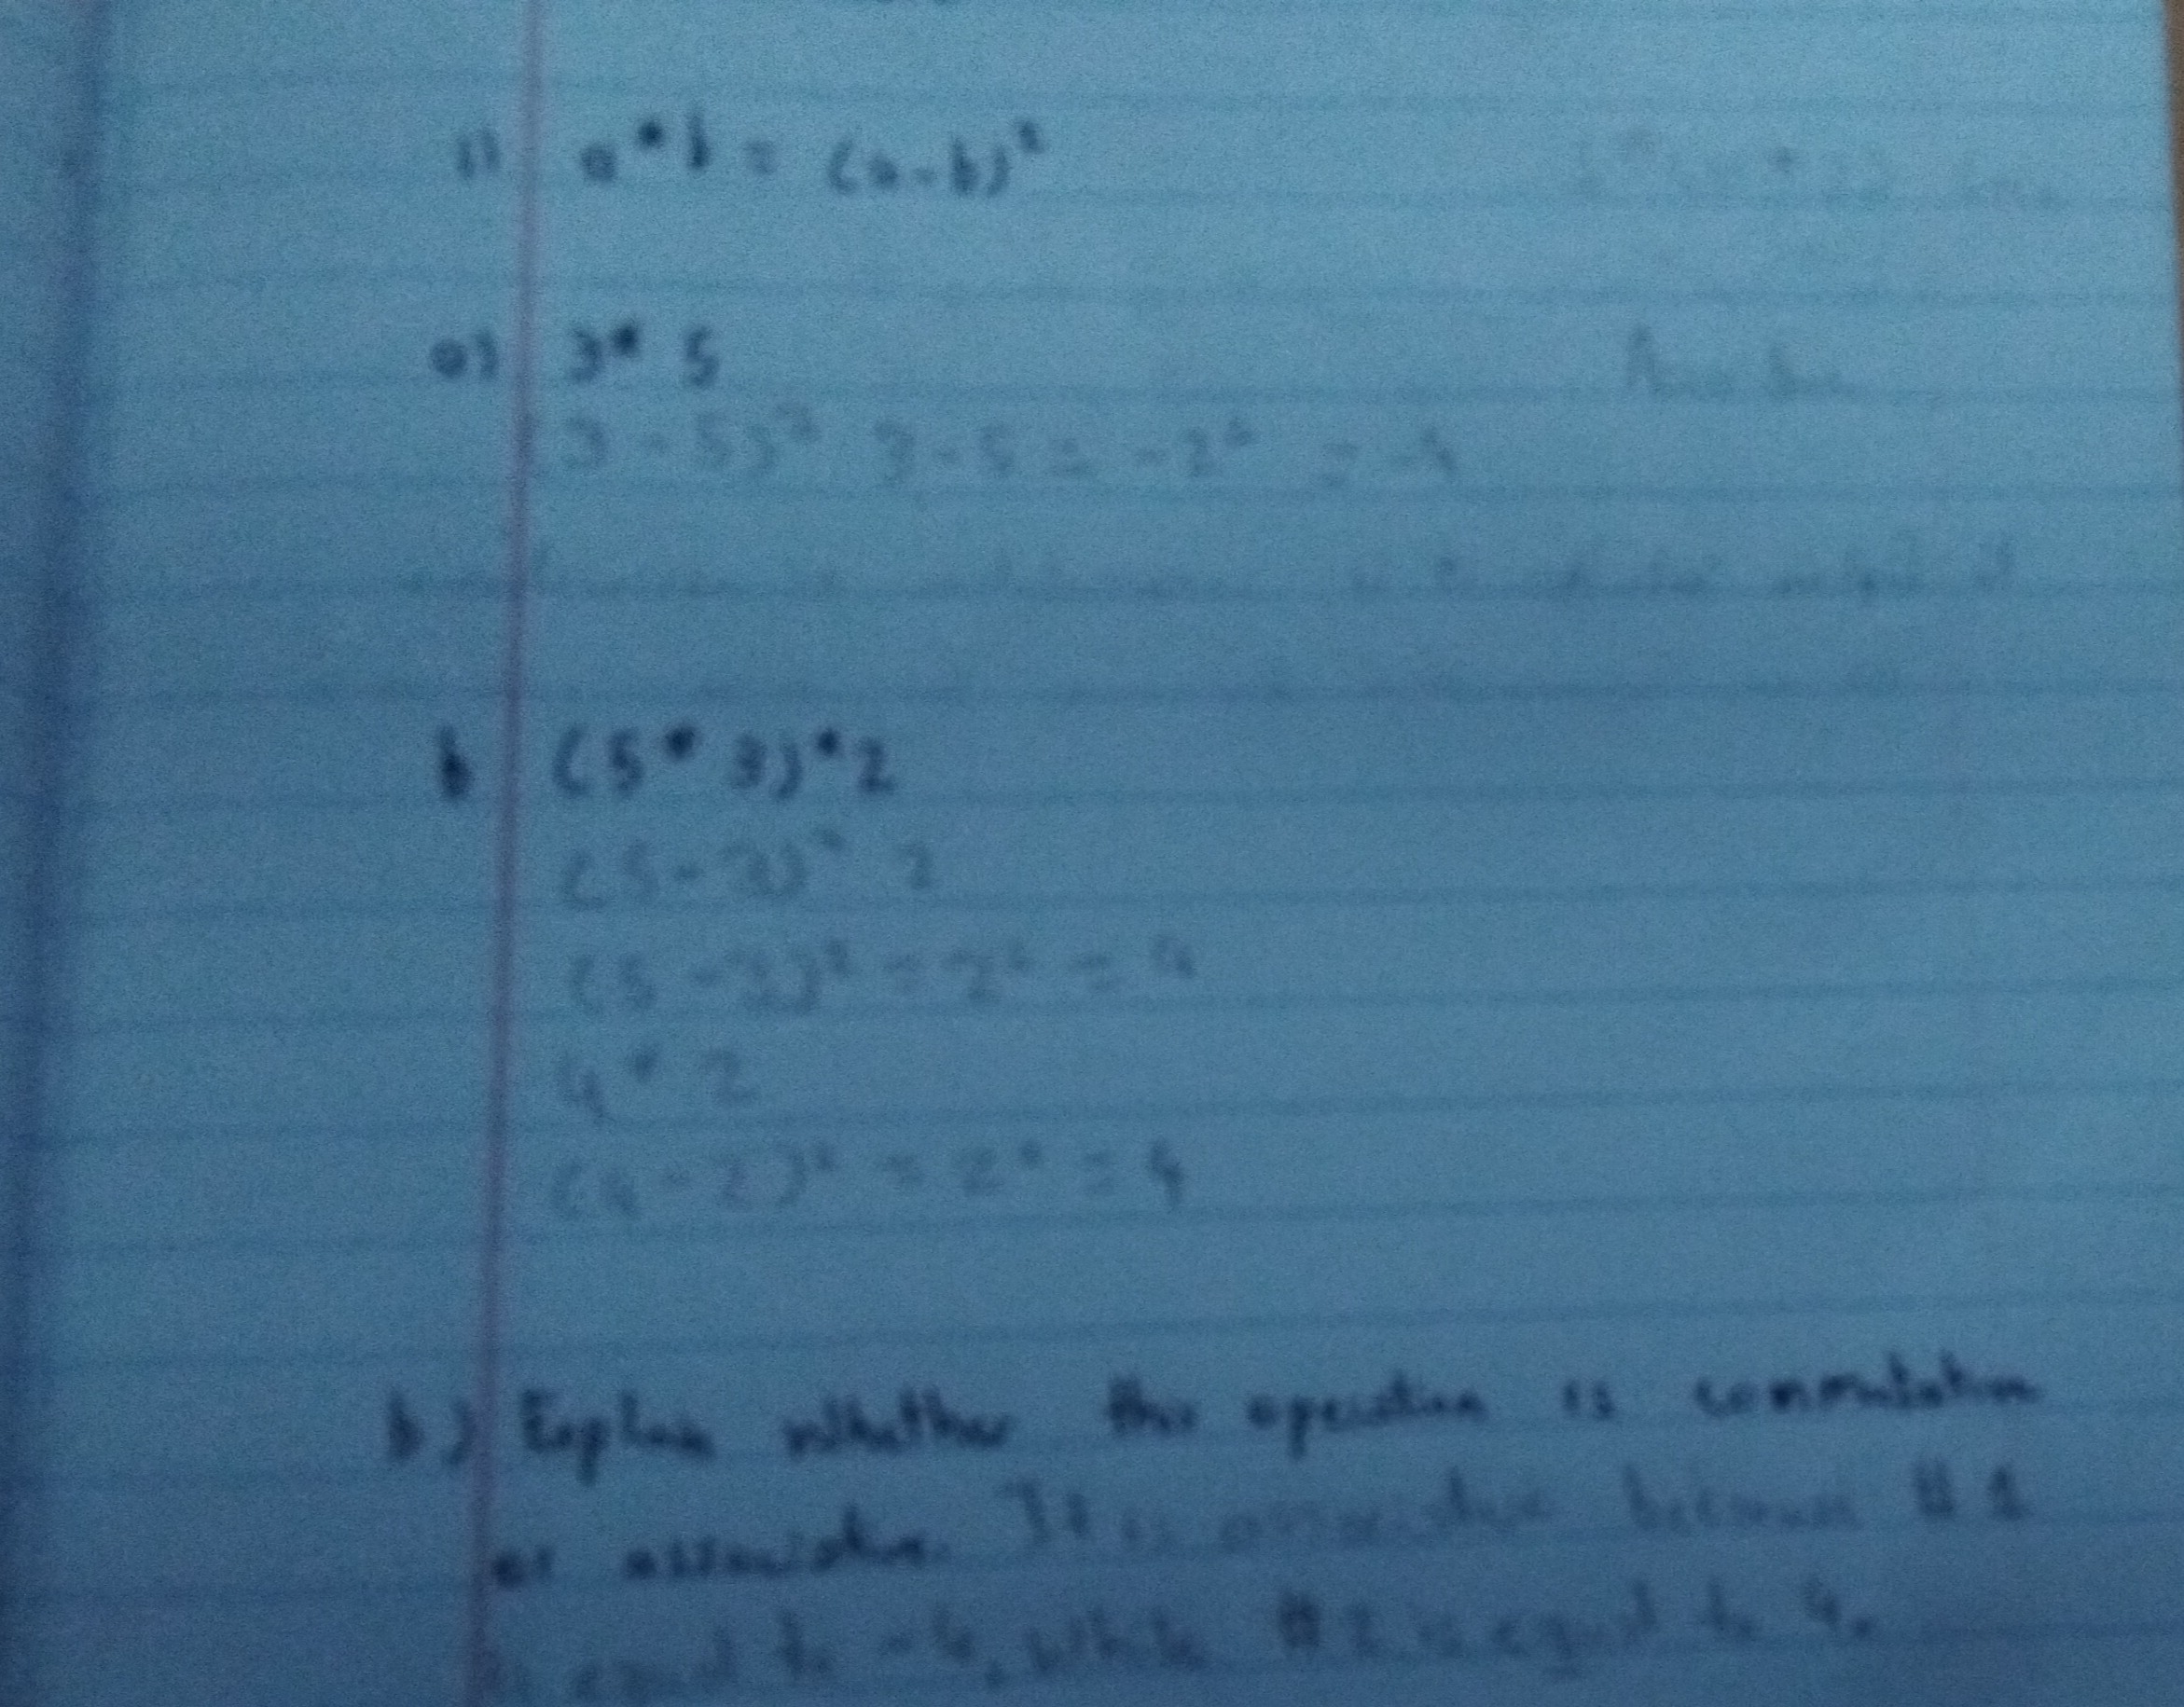 1) a * b = (a-b)²
a) 3 * 5
3 - 5)² 3 - 5 = -2² = -4
b (5 * 3) * 2
(5 - 3) * 2
(5 - 3)² = 2² = 4
4 * 2
(4 - 2)² = 2² = 4
b) Explain whether this operation is commutative
or associative. It is associative because #1
equal to -4, while #2 is equal to 4.